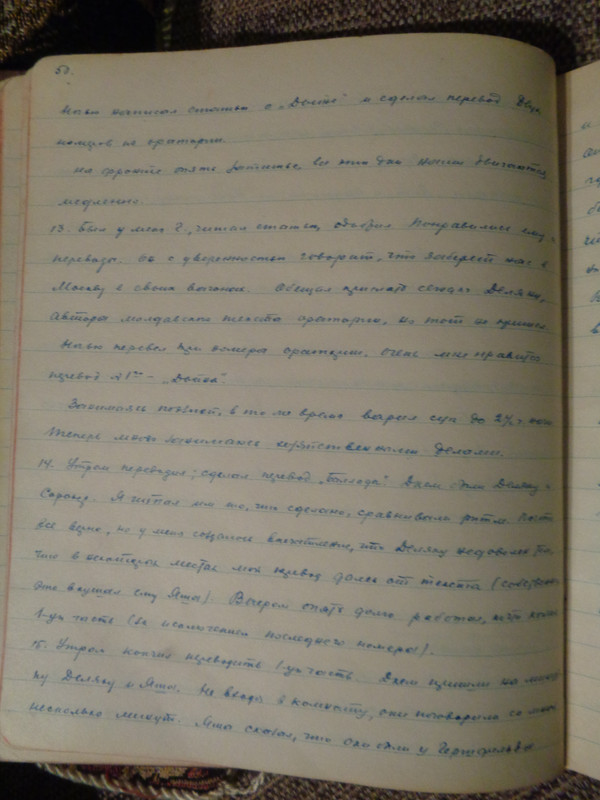 50.
Ночью написал статью о „Дойне" и сделал перевод двух
номеров из оратории.
На фронте опять затишье, все эти дни наши двигаются
медленно.
13. Был у меня Г., читал статью, одобрил. Понравились ему и
переводы. Он с уверенностью говорит, что заберет нас в
Москву в своем вагоне. Обещал прислать сегодня Деляну,
автора молдавского текста оратории, но тот не пришел.
Ночью перевел три номера оратории, очень мне нравится
перевод №1 – „Дойна".
Занимаясь поэзией, в то же время варил суп до 2½ ч. ночи.
Теперь могу заниматься хозяйственными делами.
14. Утром переводил; сделал перевод „Баллады". Днем были Деляну и
Я читал им то, что сделано, сравнивали ритм. Почти
все верно, но у меня создалось впечатление, что Деляну недоволен тем,
что в некоторых местах мой перевод далек от текста (собственно
это внушал ему Яша). Вечером опять долго работал, почти кончил
1-ую часть (за исключением последнего номера).
15. Утром кончил переводить 1-ую часть. Днем пришли на минут-
ку Деляну и Яша. Не входя в комнату, они поговорили со мной
несколько минут. Яша сказал, что они были у